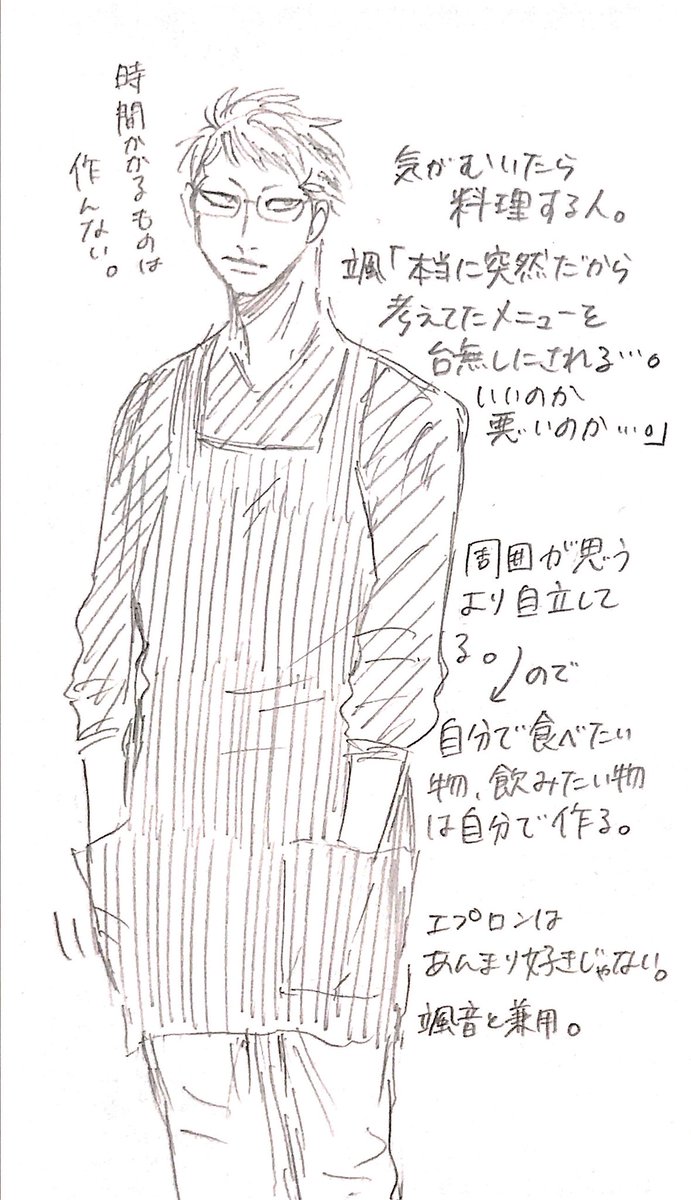 時間かかるものは
作んない。
気がむいたら
料理する人。
颯「本当に突然だから
考えてたメニューを
台無しにされる…。
いいのか
悪いのか…。」
周囲が思う
より自立して
る。
ので
自分で食べたい
物、飲みたい物
は自分で作る。
エプロンは
あんまり好きじゃない。
颯音と兼用。